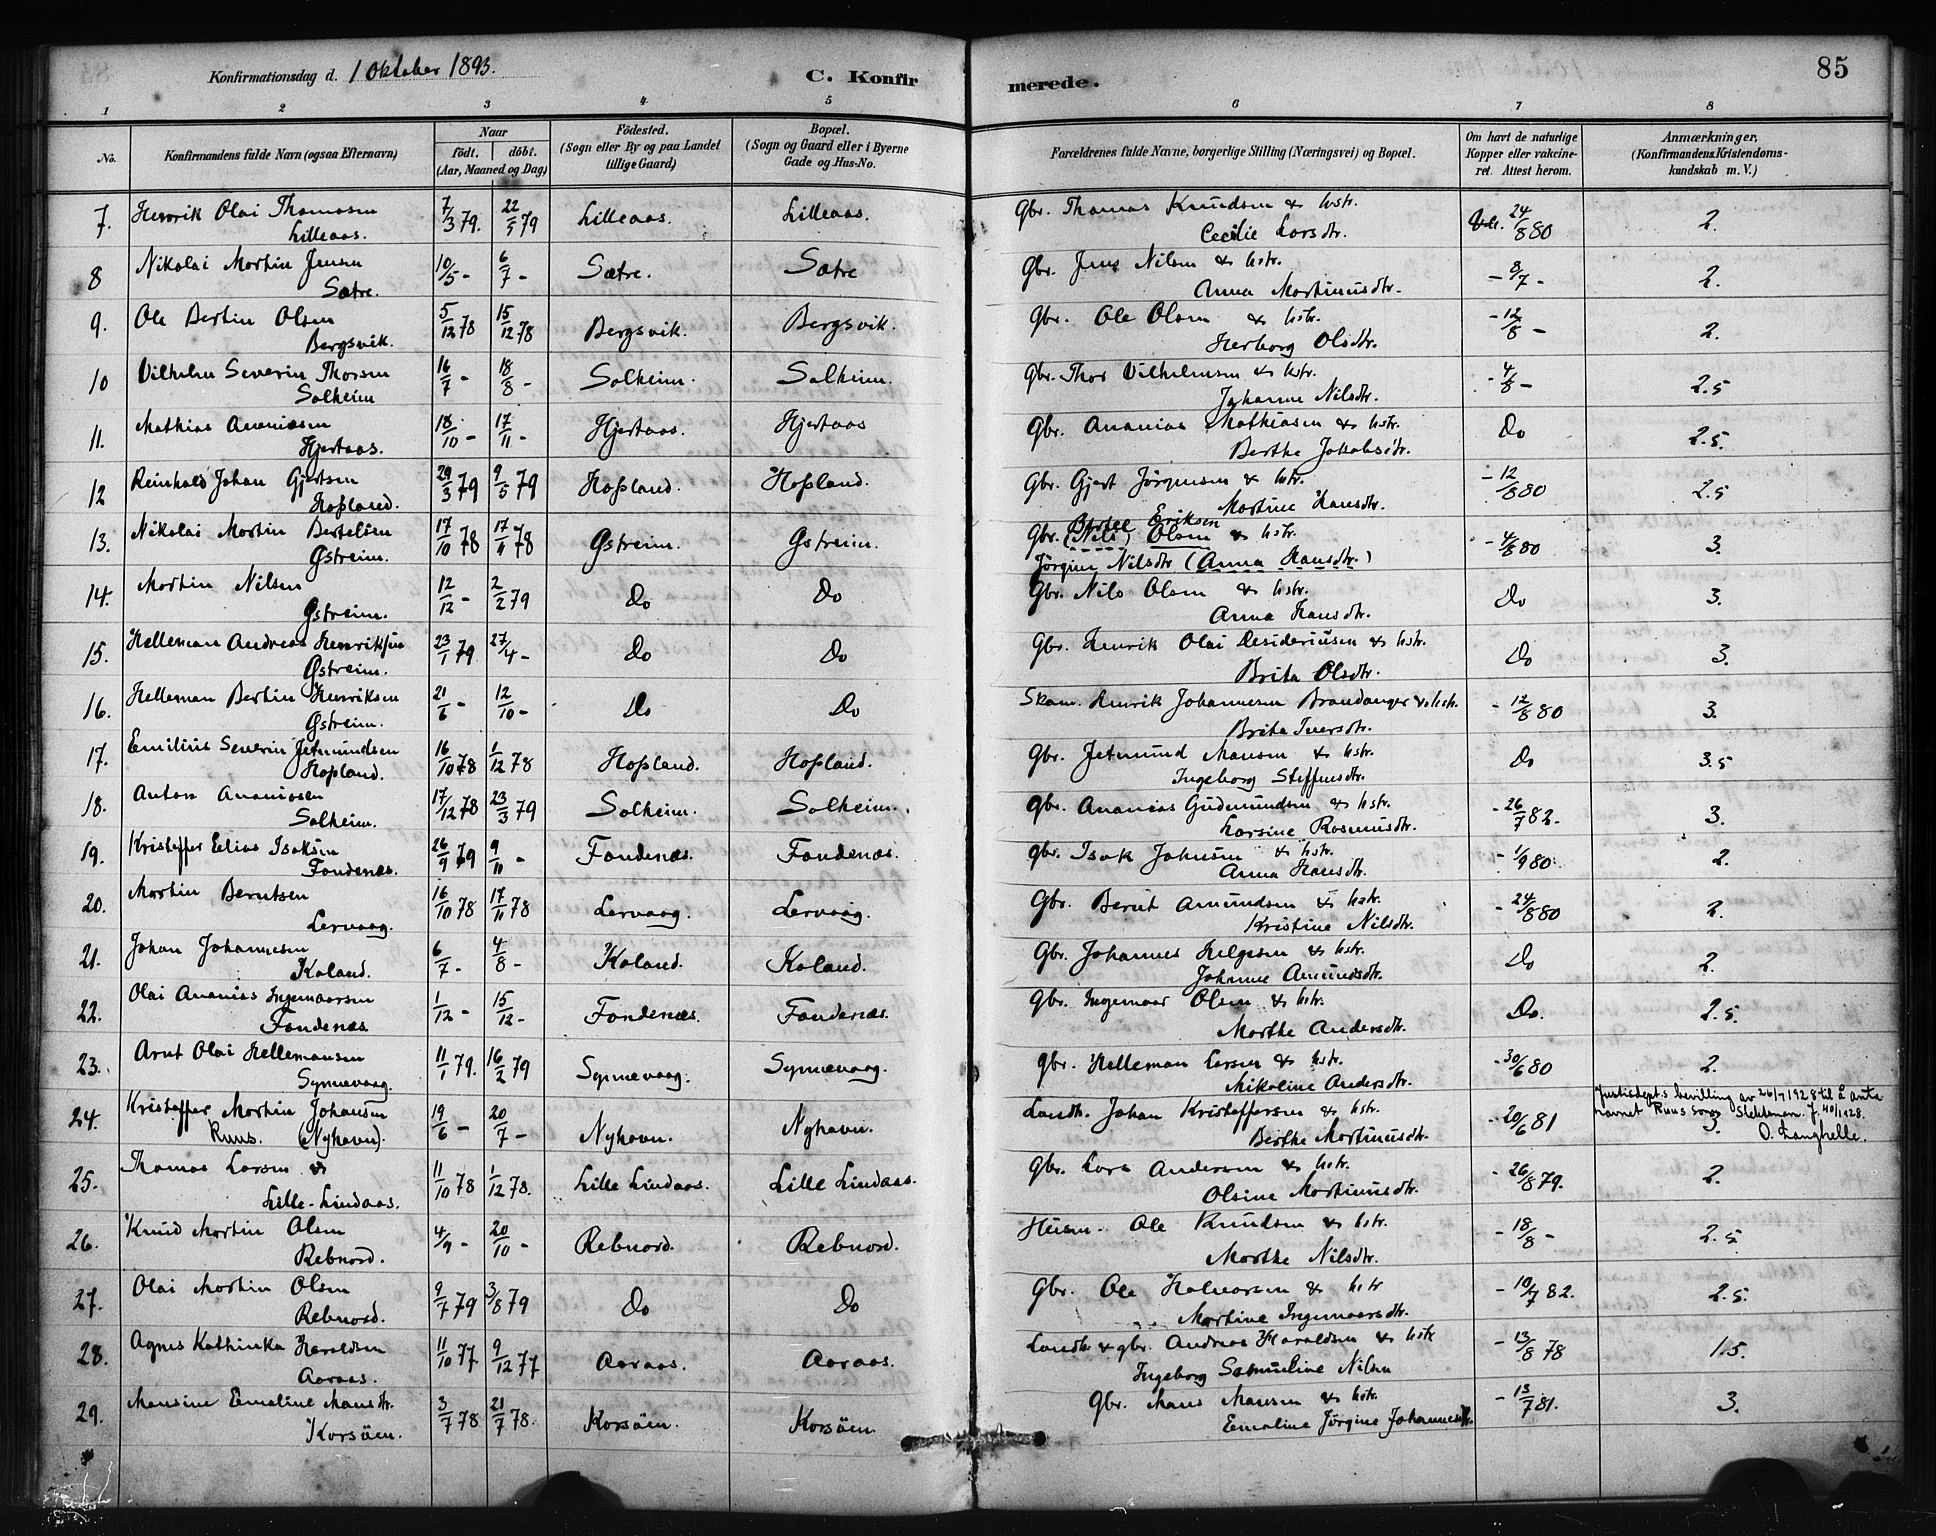 Konfirmationsdag d. 1 Oktober 1893. C. Konfir merede. 85
1 2 3 4 5 6 7 8
No. Konfirmandens fulde Navn (ogsaa Efternavn) Naar födt. döbt. (Aar, Maaned og Dag) Födested. (Sogn eller By og paa Landet tillige Gaard) Bopæl. (Sogn og Gaard eller i Byerne Gade og Hus-No. Forældrenes fulde Navne, borgerlige Stilling (Næringsvei) og Bopæl. Om havt de naturlige Kopper eller vakcineret. Attest herom. Anmærkninger, (Konfirmandens Kristendomskundskab m. V.)
7. Henrik Olai Thomasen 7/3 79. 22/5 79 Lilleaas. Lilleaas. Gbr. Thomas Knudsen & hstr. 24/8 80 2.
Lilleaas. Cecilie Larsdtr.
8 Nikolai Martin Jensen 10/5 - 6/7 - Sætre. Sætre Gbr. Jens Nilsen & hstr. - 8/7 - 2.
Sætre. Anna Martinusdtr.
9. Ole Bertin Olsen 5/12 78 15/12 78 Bergsvik. Bergsvik. Gbr. Ole Olsen & hstr. - 12/8 - 2.
Bergsvik. Herborg Olsdtr.
10 Vilhelm Severin Thorsen 16/7 - 18/8 - Solheim. Solheim. Gbr. Thor Vilhelmsen & hstr. - 4/8 - 2.5
Solheim Johanne Nilsdtr.
11. Mathias Ananiasen 18/10 - 17/11 - Hjertaas. Hjertaas Gbr. Ananias Mathiasen & hstr. Do 2.5.
Hjertaas. Berthe Jakobsdtr.
12 Reinhold Johan Gjertsen 29/3 79 9/5 79 Hopland. Hopland. Gbr. Gjert Jörgensen & hstr. - 12/8 80 2.5
Hopland. Martine Hansdtr.
Bertel Eriksen
13. Nikolai Martin Bertelsen 17/10 78 17/11 78 Østreim. Østreim. Gbr. (Nils) Olsen & hstr. - 4/8 80 3.
Østreim. Jörgine Nilsdtr (Anna Hansdtr.)
14. Martin Nilsen 12/12 - 2/2 79 Do Do Gbr. Nils Olsen & hstr. Do 3.
Østreim. Anna Hansdtr.
15. Helleman Andreas Henriksen 23/1 79. 27/4 - Do Do Gbr. Henrik Olai Desideriusen & hstr. Do 3.
Østreim. Brita Olsdtr.
16. Helleman Bertin Henriksen 21/6 - 12/10 - Do Do Skom. Henrik Johannesen Brandanger & hstr. - 12/8 80 3.
Østreim. Brita Iversdtr.
17. Emilius Severin Jetmundsen 16/10 78 1/12 78 Hopland. Hopland. Gbr. Jetmund Mansen & hstr. Do 3.5
Hopland. Ingeborg Steffensdtr.
18. Anton Ananiasen 17/12 78 23/3 79 Solheim. Solheim. Gbr. Ananias Gudmundsen & hstr. - 26/7 82. 3.
Solheim. Larsine Rasmusdtr.
19. Kristoffer Elias Isaksen 26/9 79 9/11 - Fondenæs. Fondenæs. Gbr. Isak Johnsen & hstr. - 1/9 80. 2.
Fondenæs. Anna Hansdtr.
20. Martin Berntsen 16/10 78 17/11 78 Lervaag. Lervaag. Gbr. Bernt Amundsen & hstr. - 24/8 80 2.
Lervaag. Kristine Nilsdtr.
21. Johan Johannesen 6/7 - 4/8 - Koland. Koland. Gbr. Johannes Helgesen & hstr. Do 2.
Koland. Johanne Amundsdtr.
22. Olai Ananias Ingemaarsen 1/12 - 15/12 - Fondenæs. Fondenæs. Gbr. Ingemaar Olsen & hstr. Do. 2.5.
Fondenæs. Marthe Andersdtr.
23. Arnt Olai Hellemansen 11/1 79. 16/2 79 Synnevaag. Synnevaag. Gbr. Helleman Larsen & hstr. - 30/6 80 2.
Synnevaag. Nikoline Andersdtr.
Justisdept.s bevilling av 26/1 1928 til å anta
24. Kristoffer Martin Johansen 19/6 - 20/7 - Nyhavn. Nyhavn. Landh. Johan Kristoffersen & hstr. - 20/6 81 3. navnet Ruus som Slektsnavn. J. 40/1928.
Ruus. (Nyhavn). Berthe Martinusdtr. O. Langhelle.
25. Thomas Larsen 11/10 78 1/12 78. Lille Lindaas. Lille Lindaas. Gbr. Lars Andersen & hstr. - 26/8 79. 2.
Lille-Lindaas. Olsine Martinusdtr.
26. Knud Martin Olsen 4/9 - 20/10 - Rebnord. Rebnord. Husm. Ole Knudsen & hstr. - 18/8 - 2.5
Rebnord. Marthe Nilsdtr.
27. Olai Martin Olsen 9/7 79 3/8 79 Do Do Gbr. Ole Halvorsen & hstr - 10/7 82. 2.5.
Rebnord. Martine Ingemaarsdtr.
28. Agnes Kathinka Haraldsen 11/10 77. 9/12 77 Aaraas. Aaraas. Landh. & gbr. Andreas Haraldsen & hstr - 13/8 78 1.5.
Aaraas. Ingeborg Samueline Nilsen
29. Mansine Emaline Mansdtr. 3/7 78 21/7 78. Korsöen. Korsöen. Gbr. Mans Mansen & hstr. - 13/7 81. 3.
Korsöen. Emaline Jörgine Johannesdtr.